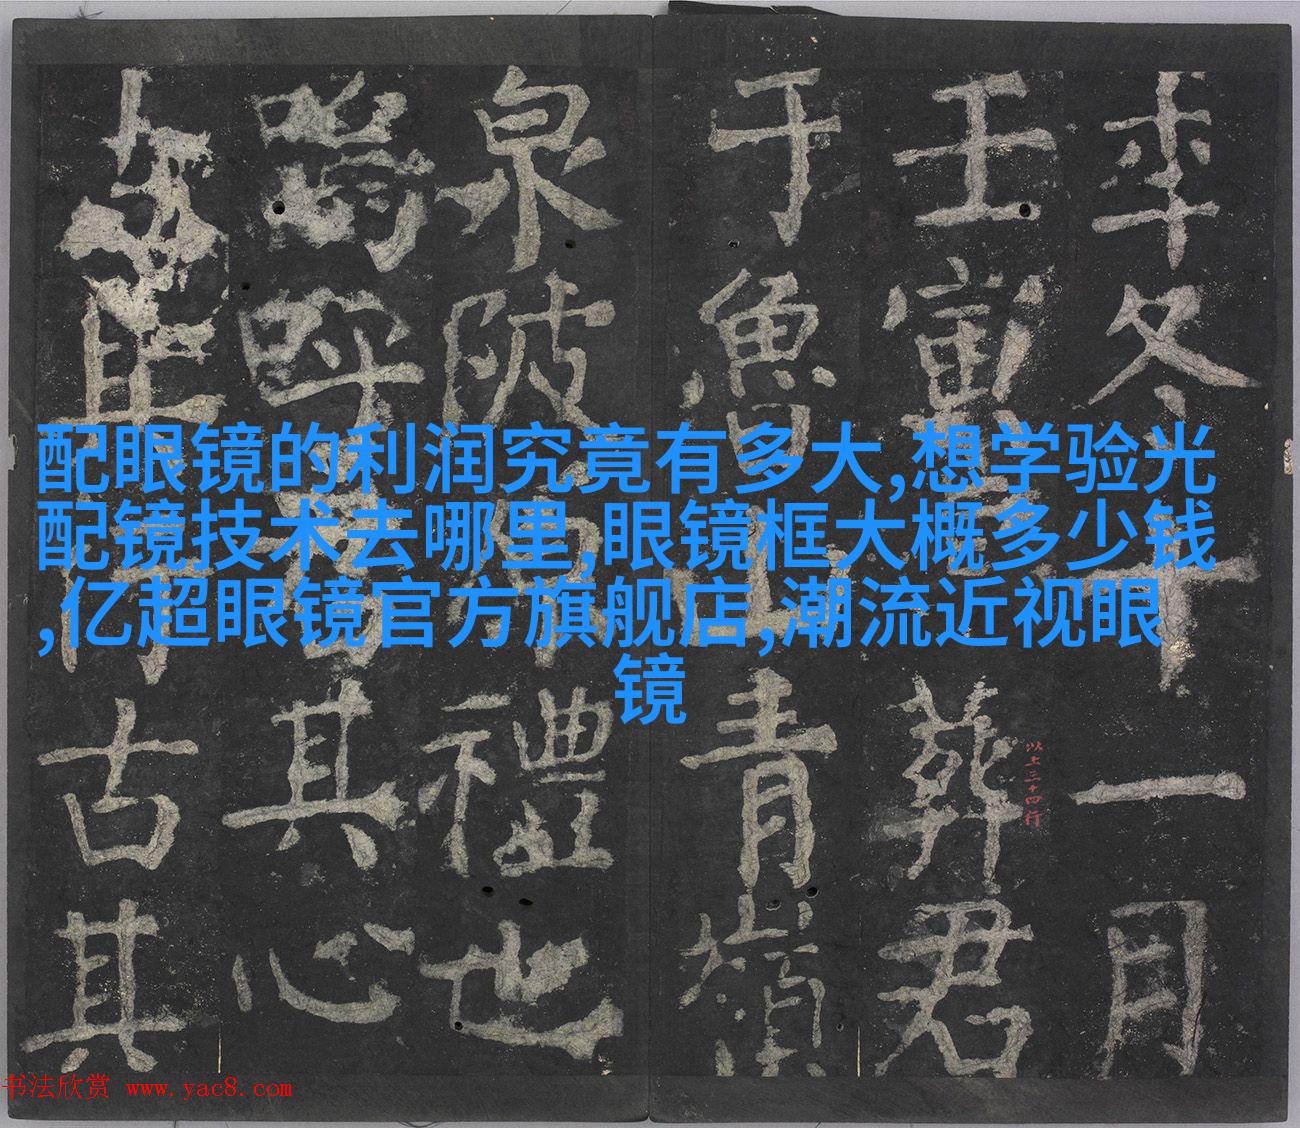 配眼镜的利润究竟有多大,想学验光
配镜技术去哪里,眼镜框大概多少钱
,亿超眼镜官方旗舰店,潮流近视眼
镜
年冬十一月
壬寅葬君
于魯山青嶺
泉陂禮也
嗚呼其心
古其
以上三十四行
书法欣赏 www.yac8.com